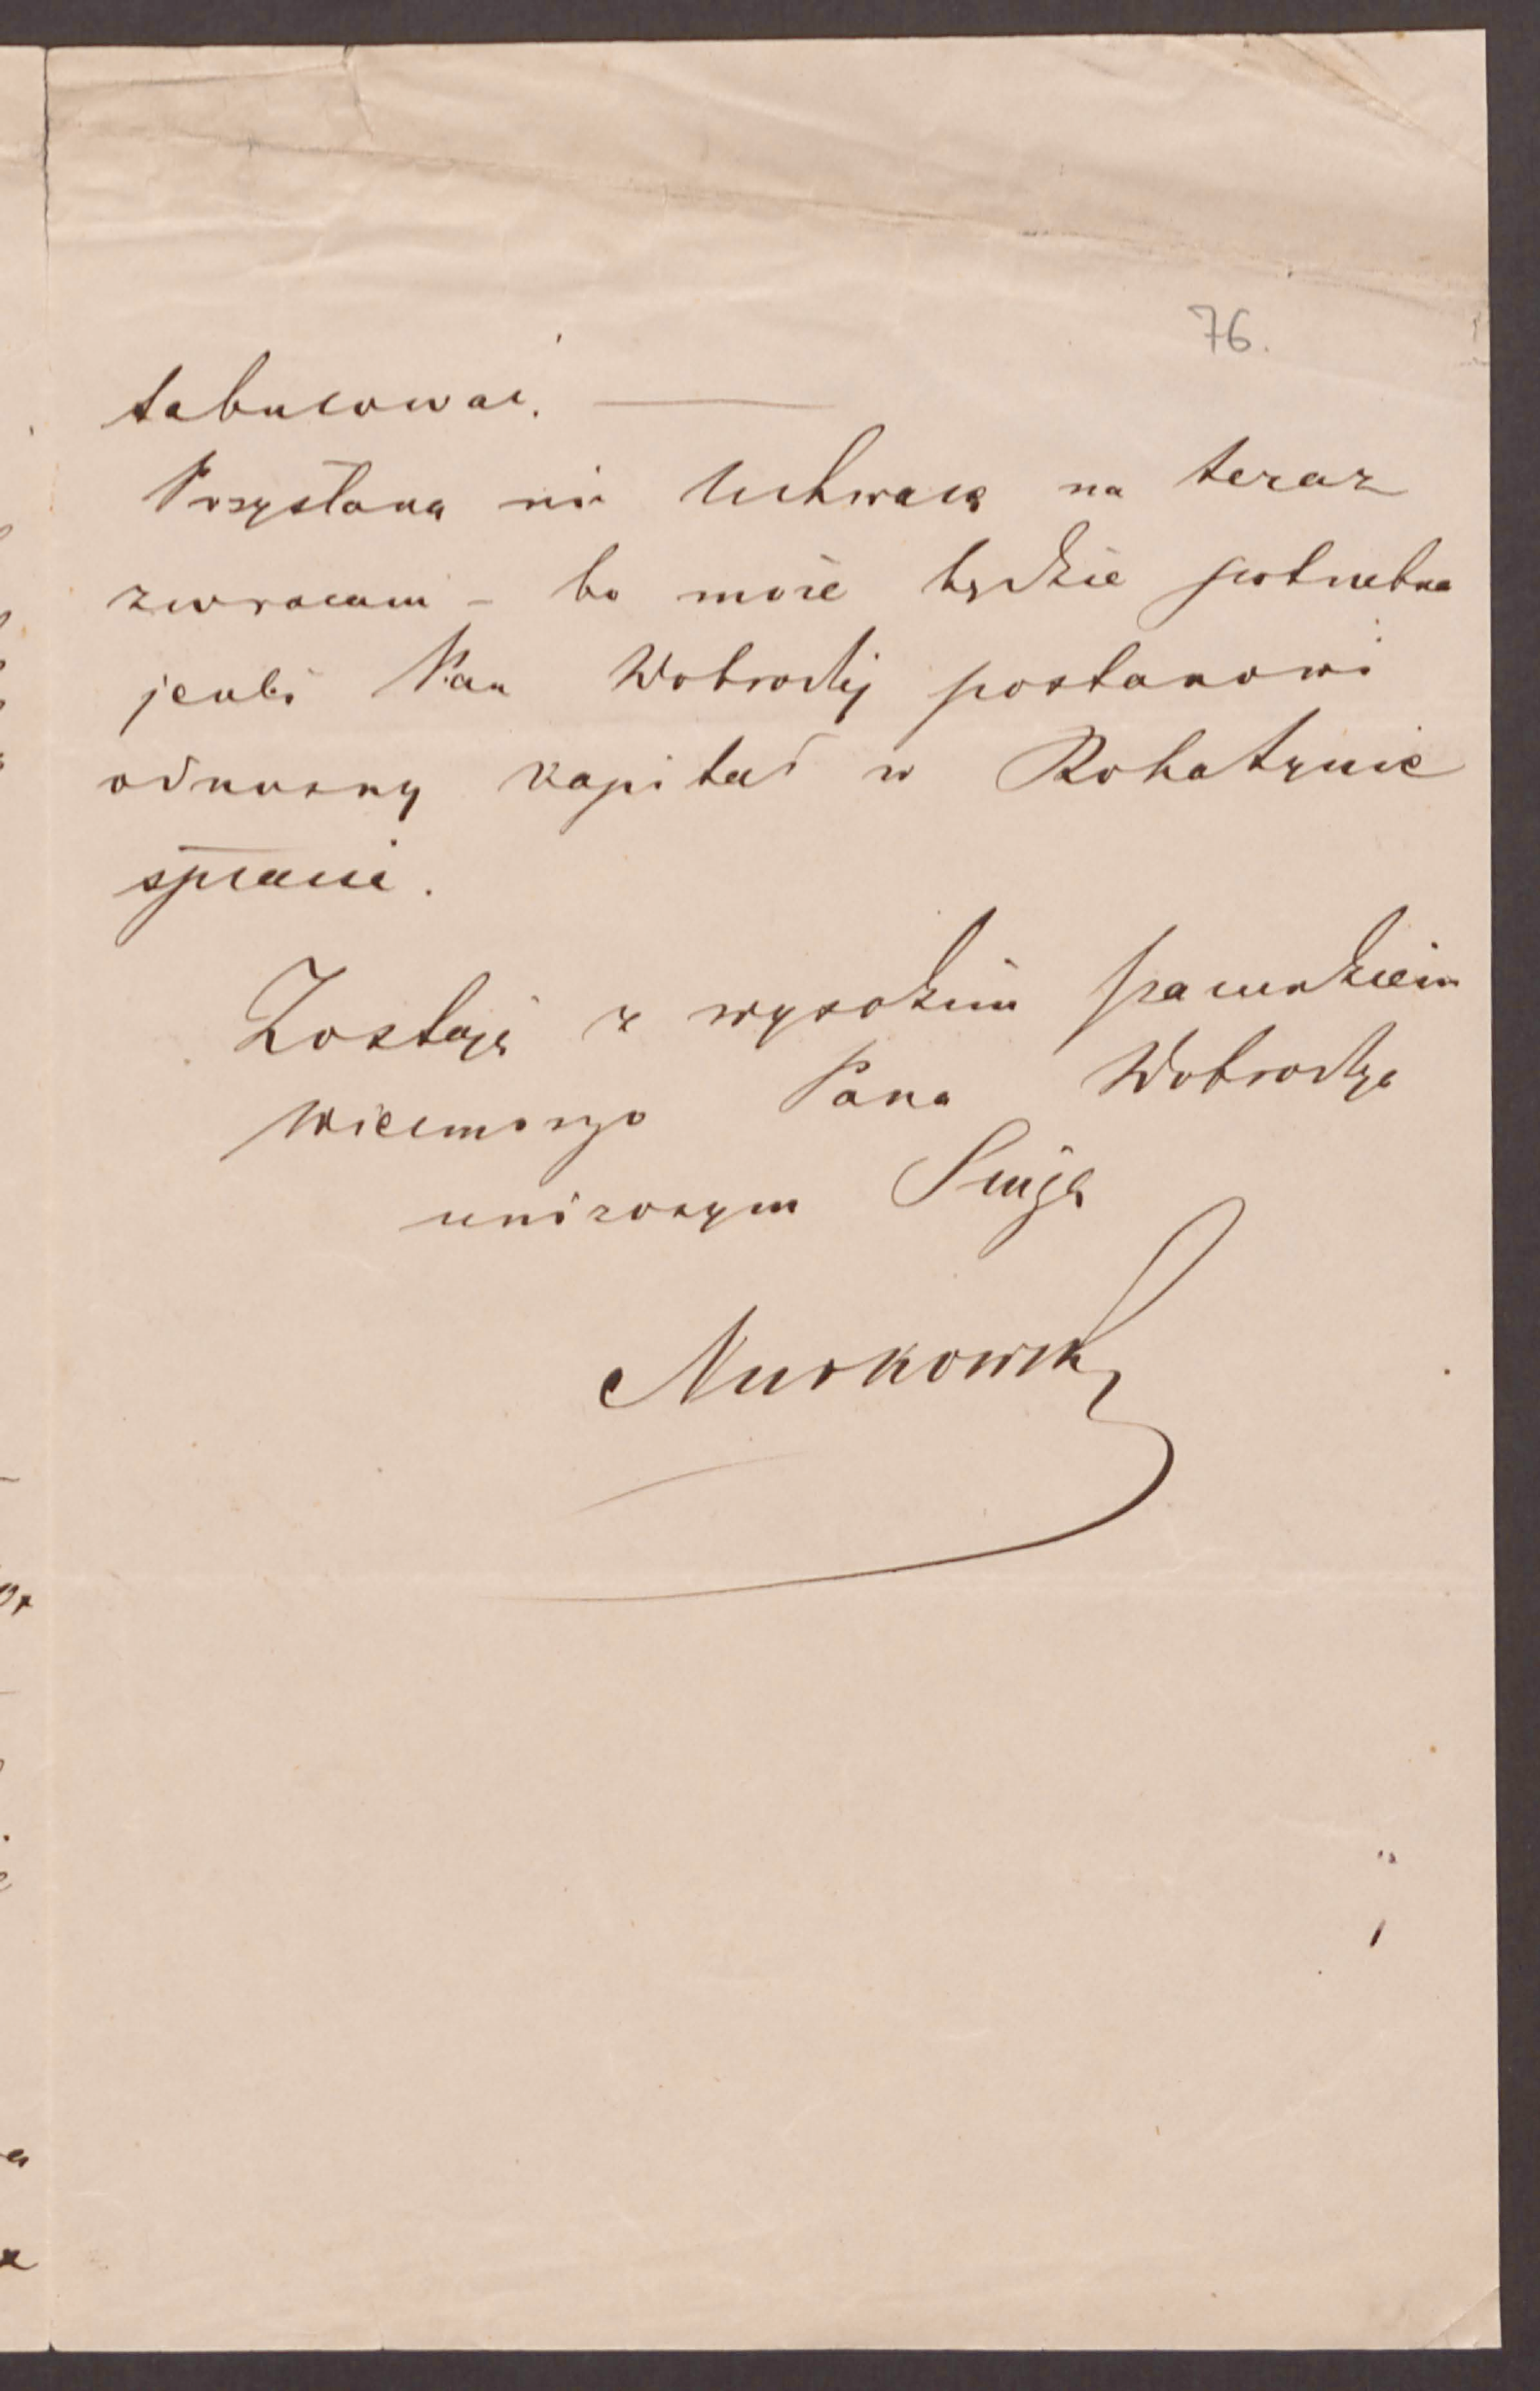 76.
tabulować. —
Przysłaną mi Uchwałę na teraz
zwracam – bo może będzie potrzebna
jeżeli Pan Dobrodzij postanowi
odnośny kapitał w Rohatynie
spłacić.
Zostaję z wysokim szacunkiem
Wielmożnego Pana Dobrodzieja
uniżonym Sługą